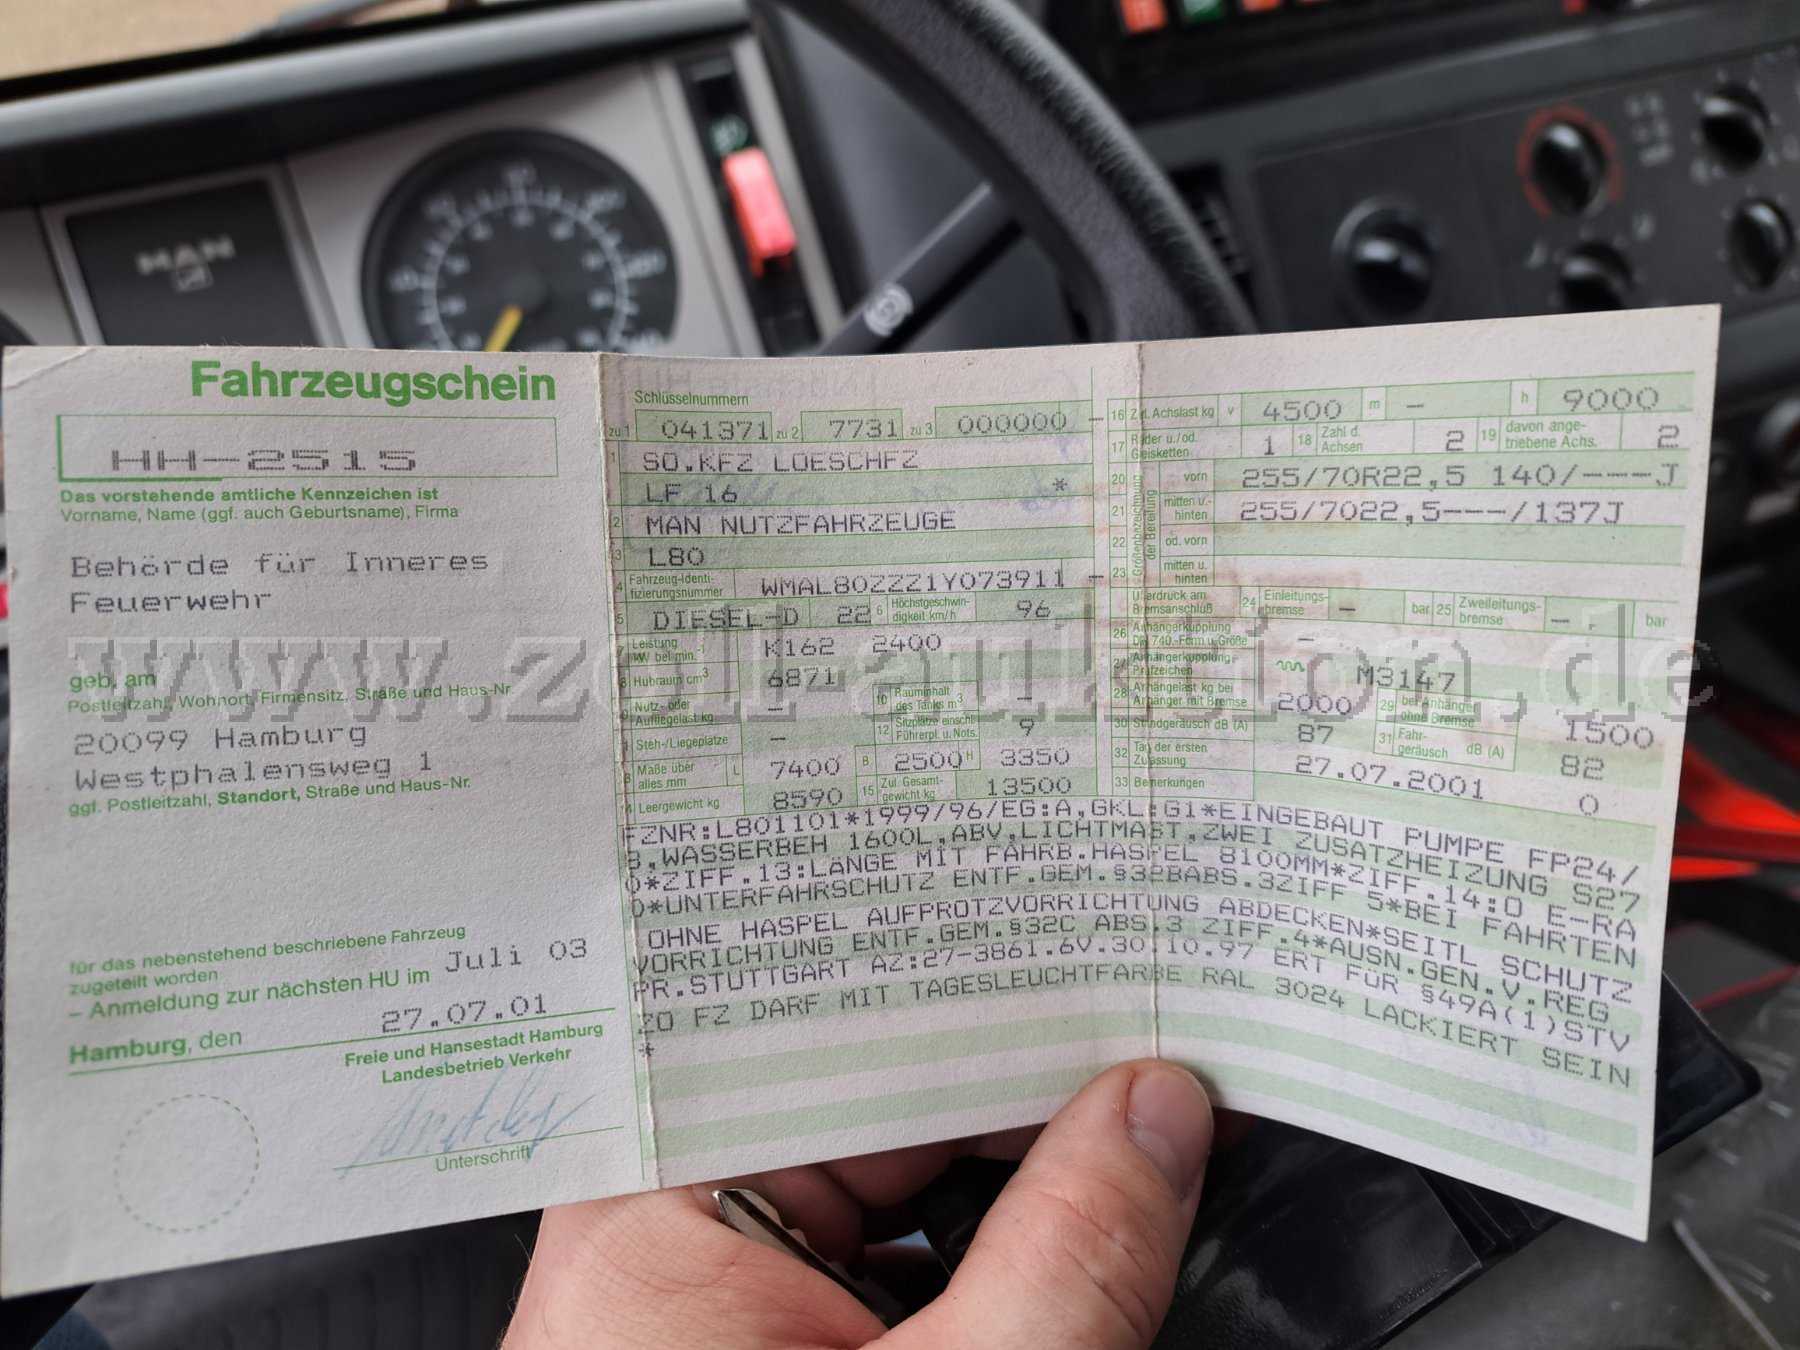 MAN
Fahrzeugschein
HH-2515
Das vorstehende amtliche Kennzeichen ist
Vorname, Name (ggf. auch Geburtsname), Firma
Behörde für Inneres
Feuerwehr
geb. am
Postleitzahl, Wohnort, Firmensitz, Straße und Haus-Nr.
20099 Hamburg
Westphalensweg 1
ggf. Postleitzahl, Standort, Straße und Haus-Nr.
für das nebenstehend beschriebene Fahrzeug
zugeteilt worden
– Anmeldung zur nächsten HU im Juli 03
Hamburg, den 27.07.01
Freie und Hansestadt Hamburg
Landesbetrieb Verkehr
Unterschrift
Schlüsselnummern
zu 1 041371 zu 2 7731 zu 3 000000 –
1 SO.KFZ LOESCHFZ
LF 16 *
2 MAN NUTZFAHRZEUGE
3 L80
4 Fahrzeug-Identi-
fizierungsnummer WMAL80ZZZ1Y073911 –
5 DIESEL-D 22 6 Höchstgeschwin-
digkeit km/h 96
7 Leistung
kW bei min.-1 K162 2400
8 Hubraum cm³ 6871
Nutz- oder
Aufliegelast kg – 10 Rauminhalt
des Tanks m³ –
Steh-/Liegeplätze – 12 Sitzplätze einschl.
Führerpl. u. Nots. 9
Maße über
alles mm L 7400 B 2500 H 3350
14 Leergewicht kg 8590 15 Zul. Gesamt-
gewicht kg 13500
16 Zul. Achslast kg v 4500 m – h 9000
17 Räder u./od.
Gleisketten 1 18 Zahl d.
Achsen 2 19 davon ange-
triebene Achs. 2
Größenbezeichnung
der Bereifung
20 vorn 255/70R22,5 140/---J
21 mitten u.-
hinten 255/7022,5---/137J
22 od. vorn
23 mitten u.
hinten
Überdruck am
Bremsanschluß 24 Einleitungs-
bremse – bar 25 Zweileitungs-
bremse – bar
26 Anhängerkupplung
DIN 740.-Form u. Größe –
27 Anhängerkupplung
Prüfzeichen M3147
28 Anhängelast kg bei
Anhänger mit Bremse 2000 29 bei Anhänger
ohne Bremse 1500
30 Standgeräusch dB (A) 87 31 Fahr-
geräusch dB (A) 82
32 Tag der ersten
Zulassung 27.07.2001 0
33 Bemerkungen
FZNR:L801101*1999/96/EG:A,GKL:G1*EINGEBAUT PUMPE FP24/
8,WASSERBEH 1600L,ABV,LICHTMAST,ZWEI ZUSATZHEIZUNG S27
0*ZIFF.13:LÄNGE MIT FAHRB.HASPEL 8100MM*ZIFF.14:O E-RA
D*UNTERFAHRSCHUTZ ENTF.GEM.§32BABS.3ZIFF 5*BEI FAHRTEN
OHNE HASPEL AUFPROTZVORRICHTUNG ABDECKEN*SEITL SCHUTZ
VORRICHTUNG ENTF.GEM.§32C ABS.3 ZIFF.4*AUSN.GEN.V.REG
PR.STUTTGART AZ:27-3861.6V.30.10.97 ERT FÜR §49A(1)STV
ZO FZ DARF MIT TAGESLEUCHTFARBE RAL 3024 LACKIERT SEIN
*
www.zoll-auktion.de